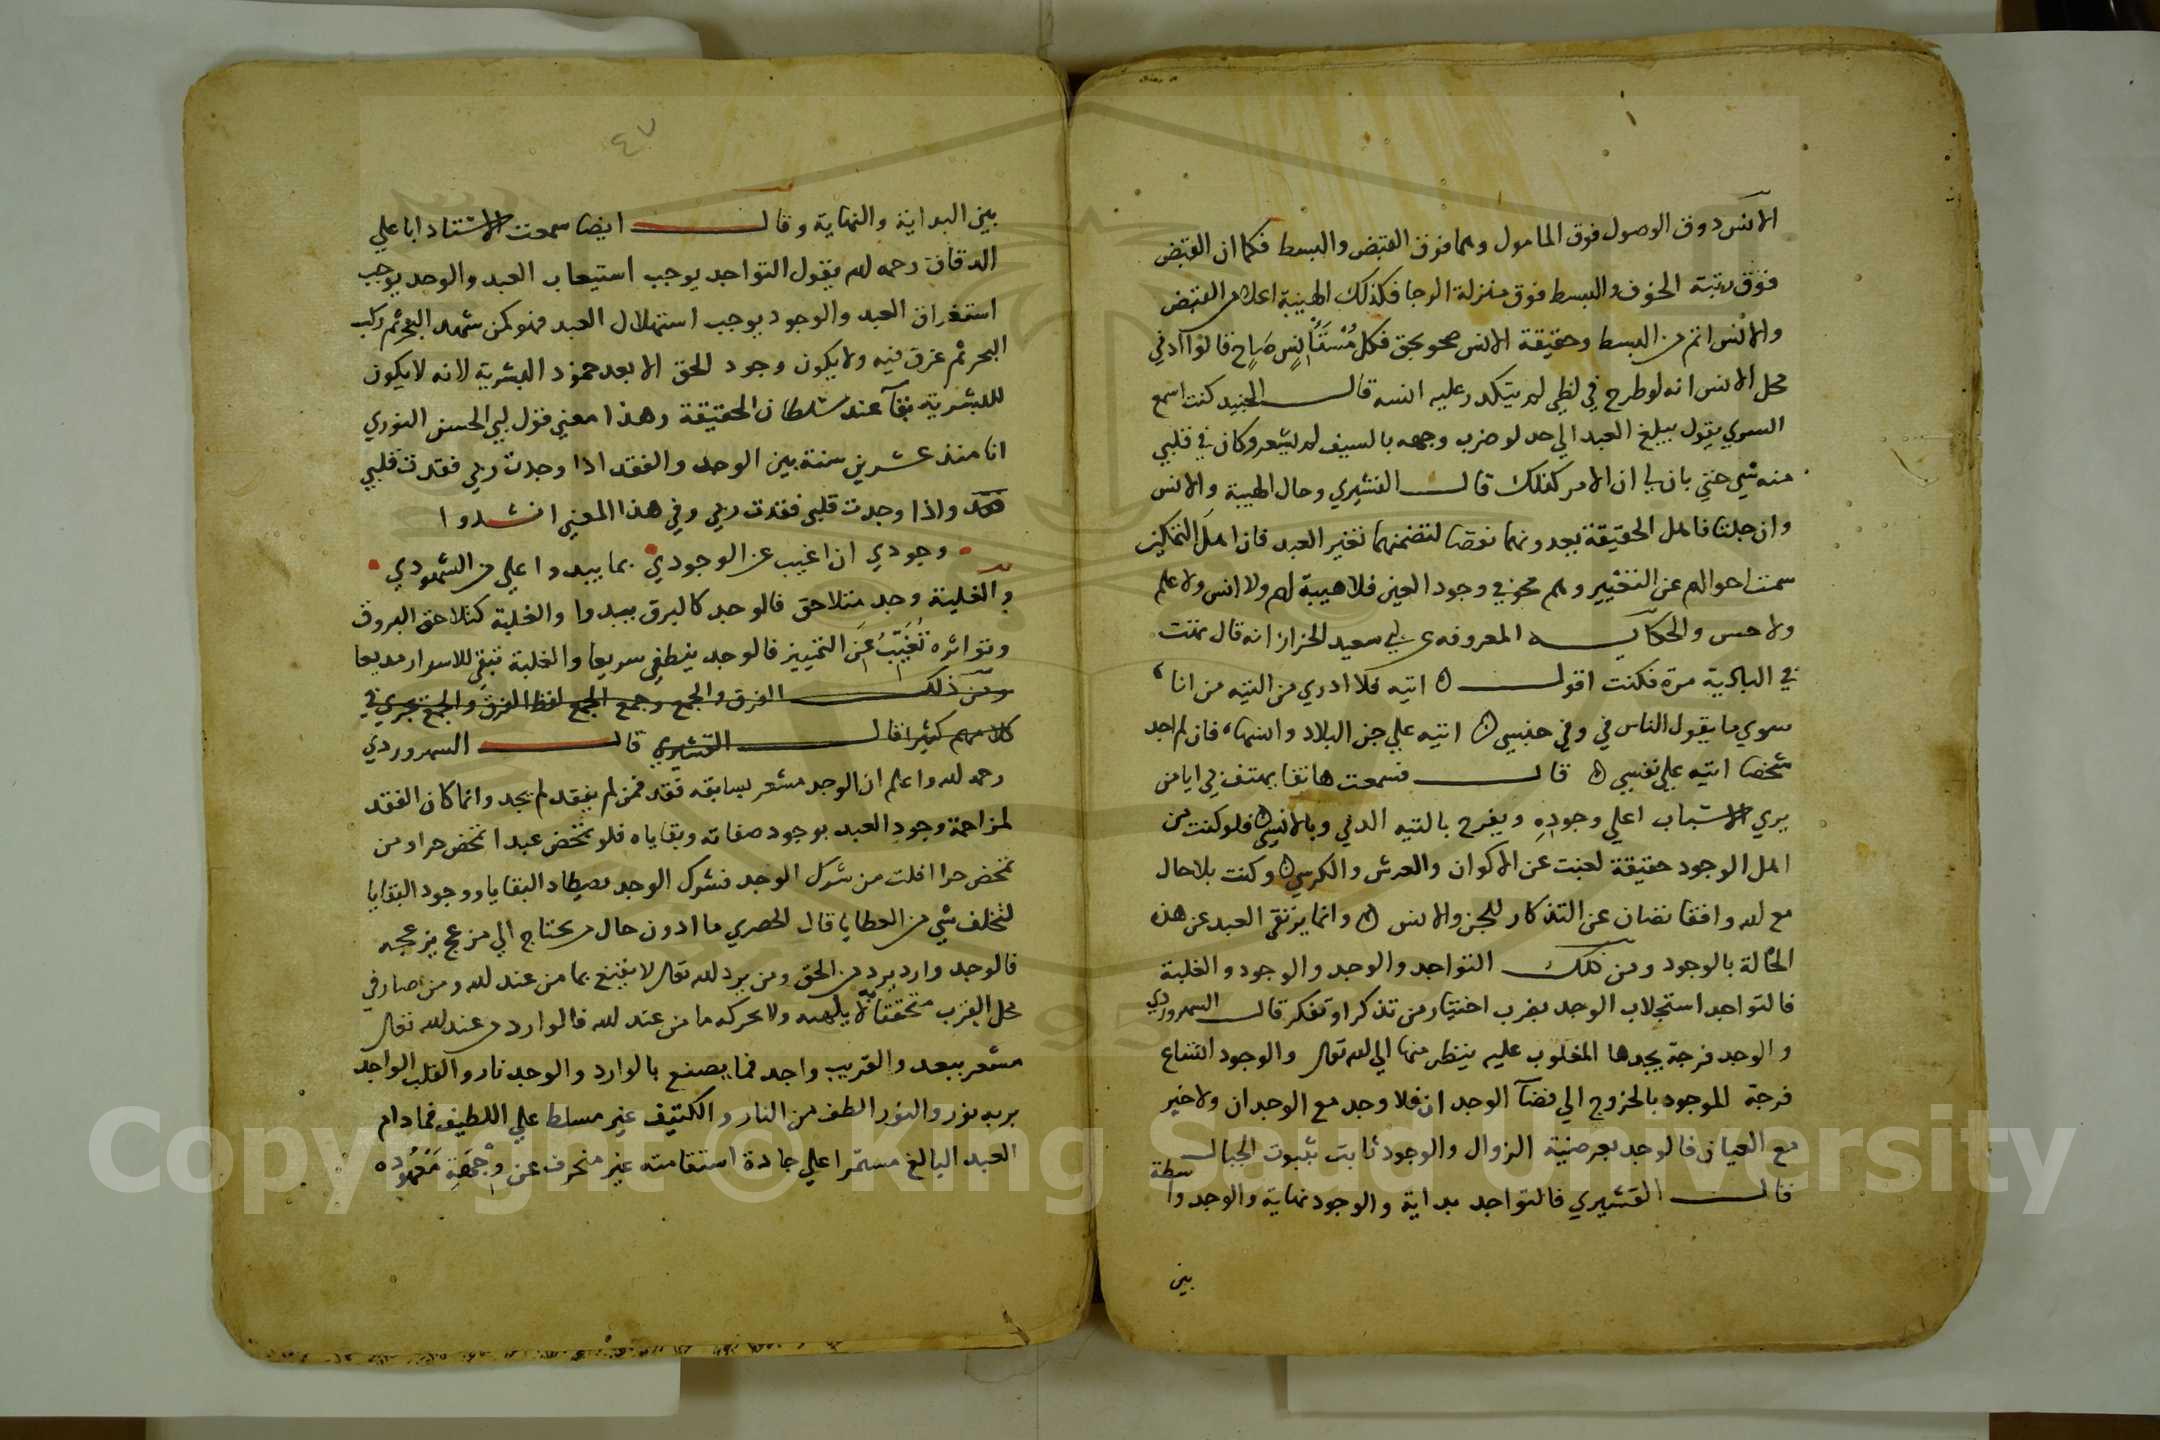 الانس دوق الوصول فوق المامول وهما فوق القبض والبسط فكما ان القبض
فوق رتبة الخوف والبسط فوق منزلة الرجا فكذلك الهيبة اعلا من القبض
والانس اتم من البسط وحقيقة الانس صحو بحق فكل مُسْتَأنِسٍ صَاحٍ قالوا ادني
محل الانس انه لو طرح في لظي لم يتكدر عليه انسه قال الجنيد كنت اسمع
السري يقول يبلغ العبد الي حد لو ضرب وجهه بالسيف لم يشعر وكان في قلبي
منه شي حتي بان لي ان الامر كذلك قال القشيري وحال الهيبة والانس
وان جلتا فاهل الحقيقة يعدونهما نقصا لتضمنهما تغير العبد فان اهل التمكين
سمت احوالهم عن التغيير وهم محو في وجود العين فلا هيبة لهم ولا انس ولا علم
ولا حس والحكاية المعروفه عن ابي سعيد الخراز انه قال تهت
في البادية مرة فكنت اقول ٥ اتيه فلا ادري من التيه من انا
سوي ما يقول الناس في وفي جنسي ٥ اتيه علي جن البلاد وانسها فان لم اجد
شخصا اتيه علي نفسي ٥ قال فسمعت هاتفا يهتف بي ايا من
يري الاسباب اعلي وجودِهِ ويفرح بالتيه الدني وبالانس ٥ فلو كنت من
اهل الوجود حقيقة لغبت عن الاكوان والعرش والكرسي ٥ وكنت بلا حال
مع الله واقفا تصان عن التذكار للجن والانس ٥ وانما يرتقي العبد عن هذه
الحالة بالوجود ومن ذلك التواجد والوجد والوجود والغلبة
فالتواجد استجلاب الوجد بضرب اختيار من تذكر او تفكر قال السهروردي
والوجد فرجة يجدها المغلوب عليه ينظر منها الي الله تعالى والوجود اتساع
فرجة الموجود بالخروج الي فضآ الوجدان فلا وجد مع الوجدان ولا خبر
مع العيان فالوجد بعرضية الزوال والوجود ثابت بثبوت الجبال
قال القشيري فالتواجد بداية والوجود نهاية والوجد واسطة
بين
٤٧
بين البداية والنهاية وقال ايضا سمعت الاستاد ابا علي
الدقاق رحمه الله يقول التواجد يوجب استيعاب العبد والوجد يوجب
استغراق العبد والوجود يوجب استهلاك العبد فهو كمن شهد البحر ثم ركب
البحر ثم غرق فيه ولا يكون وجود الحق الا بعد خمود البشرية لانه لا يكون
للبشرية بقآ عند سلطان الحقيقة وهذا معني قول ابي الحسن النوري
انا منذ عشرين سنة بين الوجد والفقد اذا وجدت ربي فقدت قلبي
واذا وجدت قلبي فقدت ربي وفي هذا المعني انشدوا
وجودي ان اغيب عن الوجودي بما يبدوا علي من الشهودي
والغلبة وجد متلاحق فالوجد كالبرق يبدوا والغلبة كتلاحق البروق
وتواتره تُغَيّبُ عَن التمييز فالوجد ينطفي سريعا والغلبة تبقي للاسرار مديعا
ومن ذلك الفرق والجمع وجمع الجمع لفظ الفرق والجمع يجري في
كلامهم كثيرا قال القشيري قال السهروردي
رحمه الله واعلم ان الوجد مشعر بسابقه فقد فمن لم يفقد لم يجد وانما كان الفقد
لمزاحمة وجود العبد بوجود صفاته وبقاياه فلو تمخض عبدا تمخض حرا ومن
تمخض حرا افلت من شرك الوجد فشرك الوجد يصطاد البقايا ووجود البقايا
لتخلف شي من العطايا قال الحصري ما ادون حال من يحتاج الي مزعج يزعجه
فالوجد وارد يرد من الحق ومن يرد الله تعالى لا يقنع بما من عند الله ومن صار في
محل القرب متحققا به لا يلهيه ولا يحركه ما من عند الله فالوارد من عند الله تعالى
مشعر ببعد والقريب واجد فما يصنع بالوارد والوجد نار والقلب الواجد
بربه نور والنور الطف من النار والكثيف غير مسلط علي اللطيف فما دام
العبد البالغ مستمرا علي جادة استقامته غير منحرف عن وِجْهَةِ مَعْهُودِه
Copyright © King Saud University